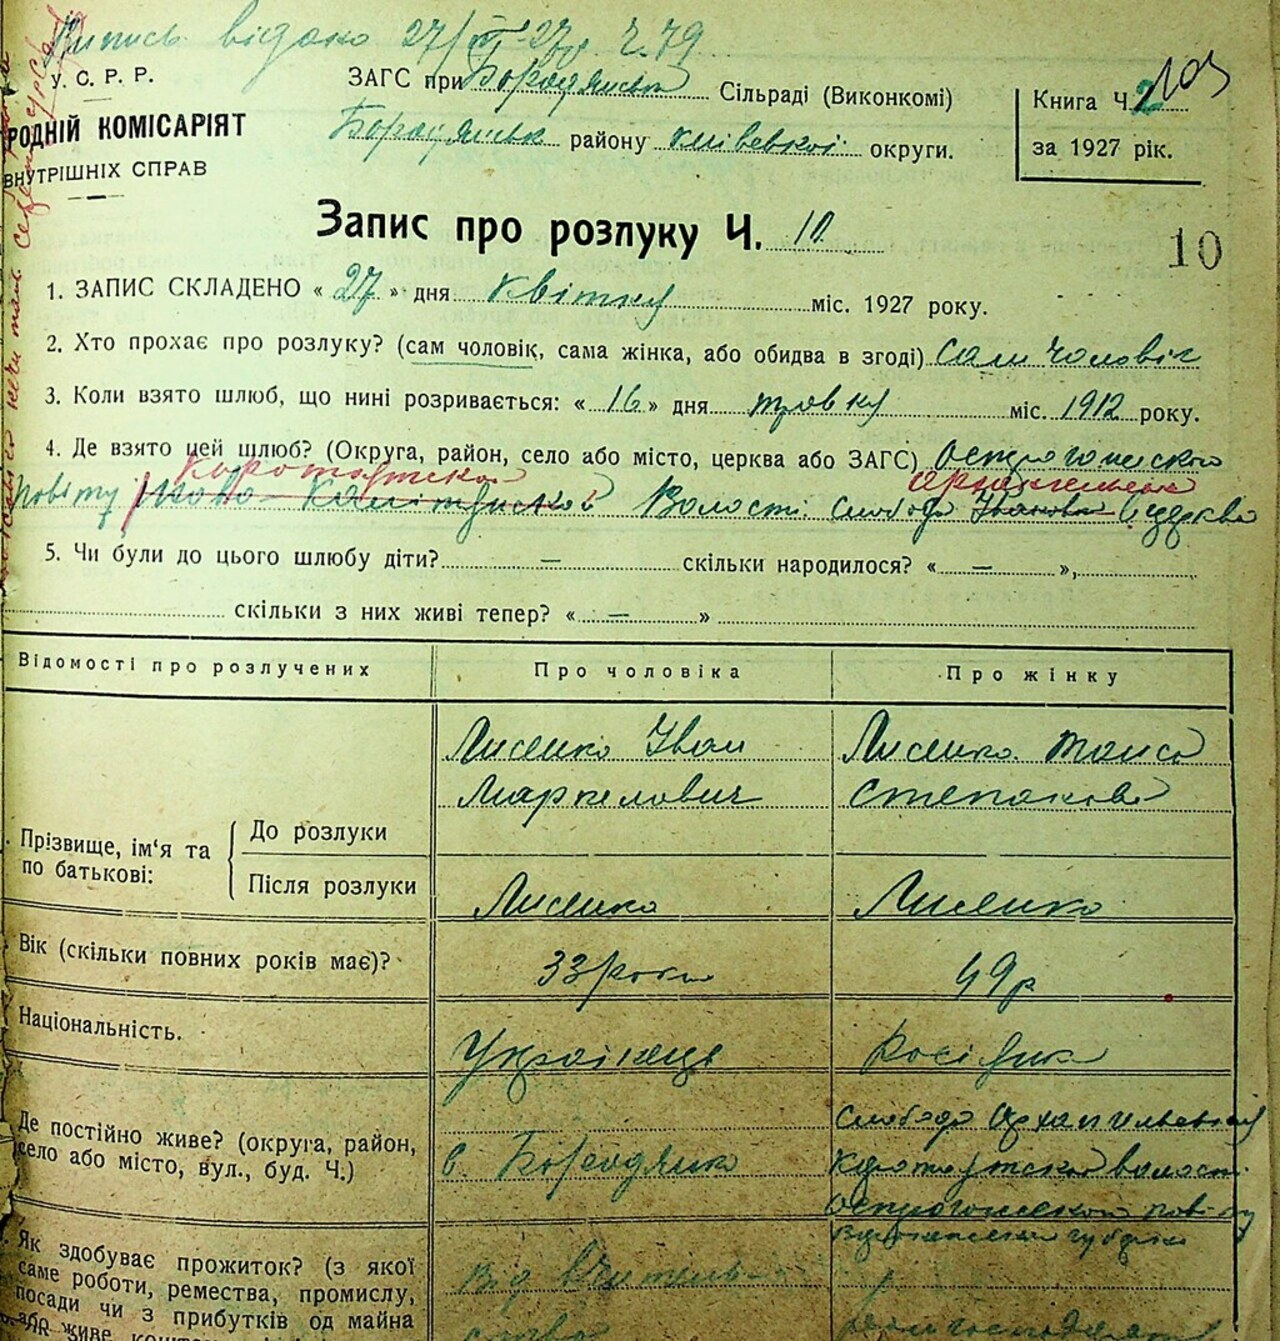 Випись видано 27/VI-27р. Ч. 79
У. С. Р. Р.
РОДНІЙ КОМІСАРІЯТ
ВНУТРІШНІХ СПРАВ
ЗАГС при Бородянськ Сільраді (Виконкомі)
Бородянськ району Київської округи.
Книга Ч. 2
за 1927 рік.
103
Запис про розлуку Ч. 10
10
1. ЗАПИС СКЛАДЕНО « 27 » дня квітня міс. 1927 року.
2. Хто прохає про розлуку? (сам чоловік, сама жінка, або обидва в згоді) сам чоловік
3. Коли взято шлюб, що нині розривається: « 16 » дня травня міс. 1912 року.
4. Де взято цей шлюб? (Округа, район, село або місто, церква або ЗАГС) Острогожського
Коротоятской Архангельська
повіту волості слобода Іванівка церква
5. Чи були до цього шлюбу діти? — скільки народилося? « — »,
скільки з них живі тепер? « — »
Відомості про розлучених Про чоловіка Про жінку
Лисенко Іван Лисенко Таиса
Маркелович Степанова
Прізвище, ім'я та по батькові: До розлуки
Після розлуки Лисенко Лисенко
Вік (скільки повних років має)? 33 роки 49 р
Національність. Українець Росіянка
Де постійно живе? (округа, район,
село або місто, вул., буд. Ч.)
с Бородянка
Слобода Архангельська
Коротоятской волости
Острогожской повіту
Воронежской губернії
Як здобуває прожиток? (з якої
саме роботи, ремества, промислу,
посади чи з прибутків од майна
або живе
Від вчитель-
ства